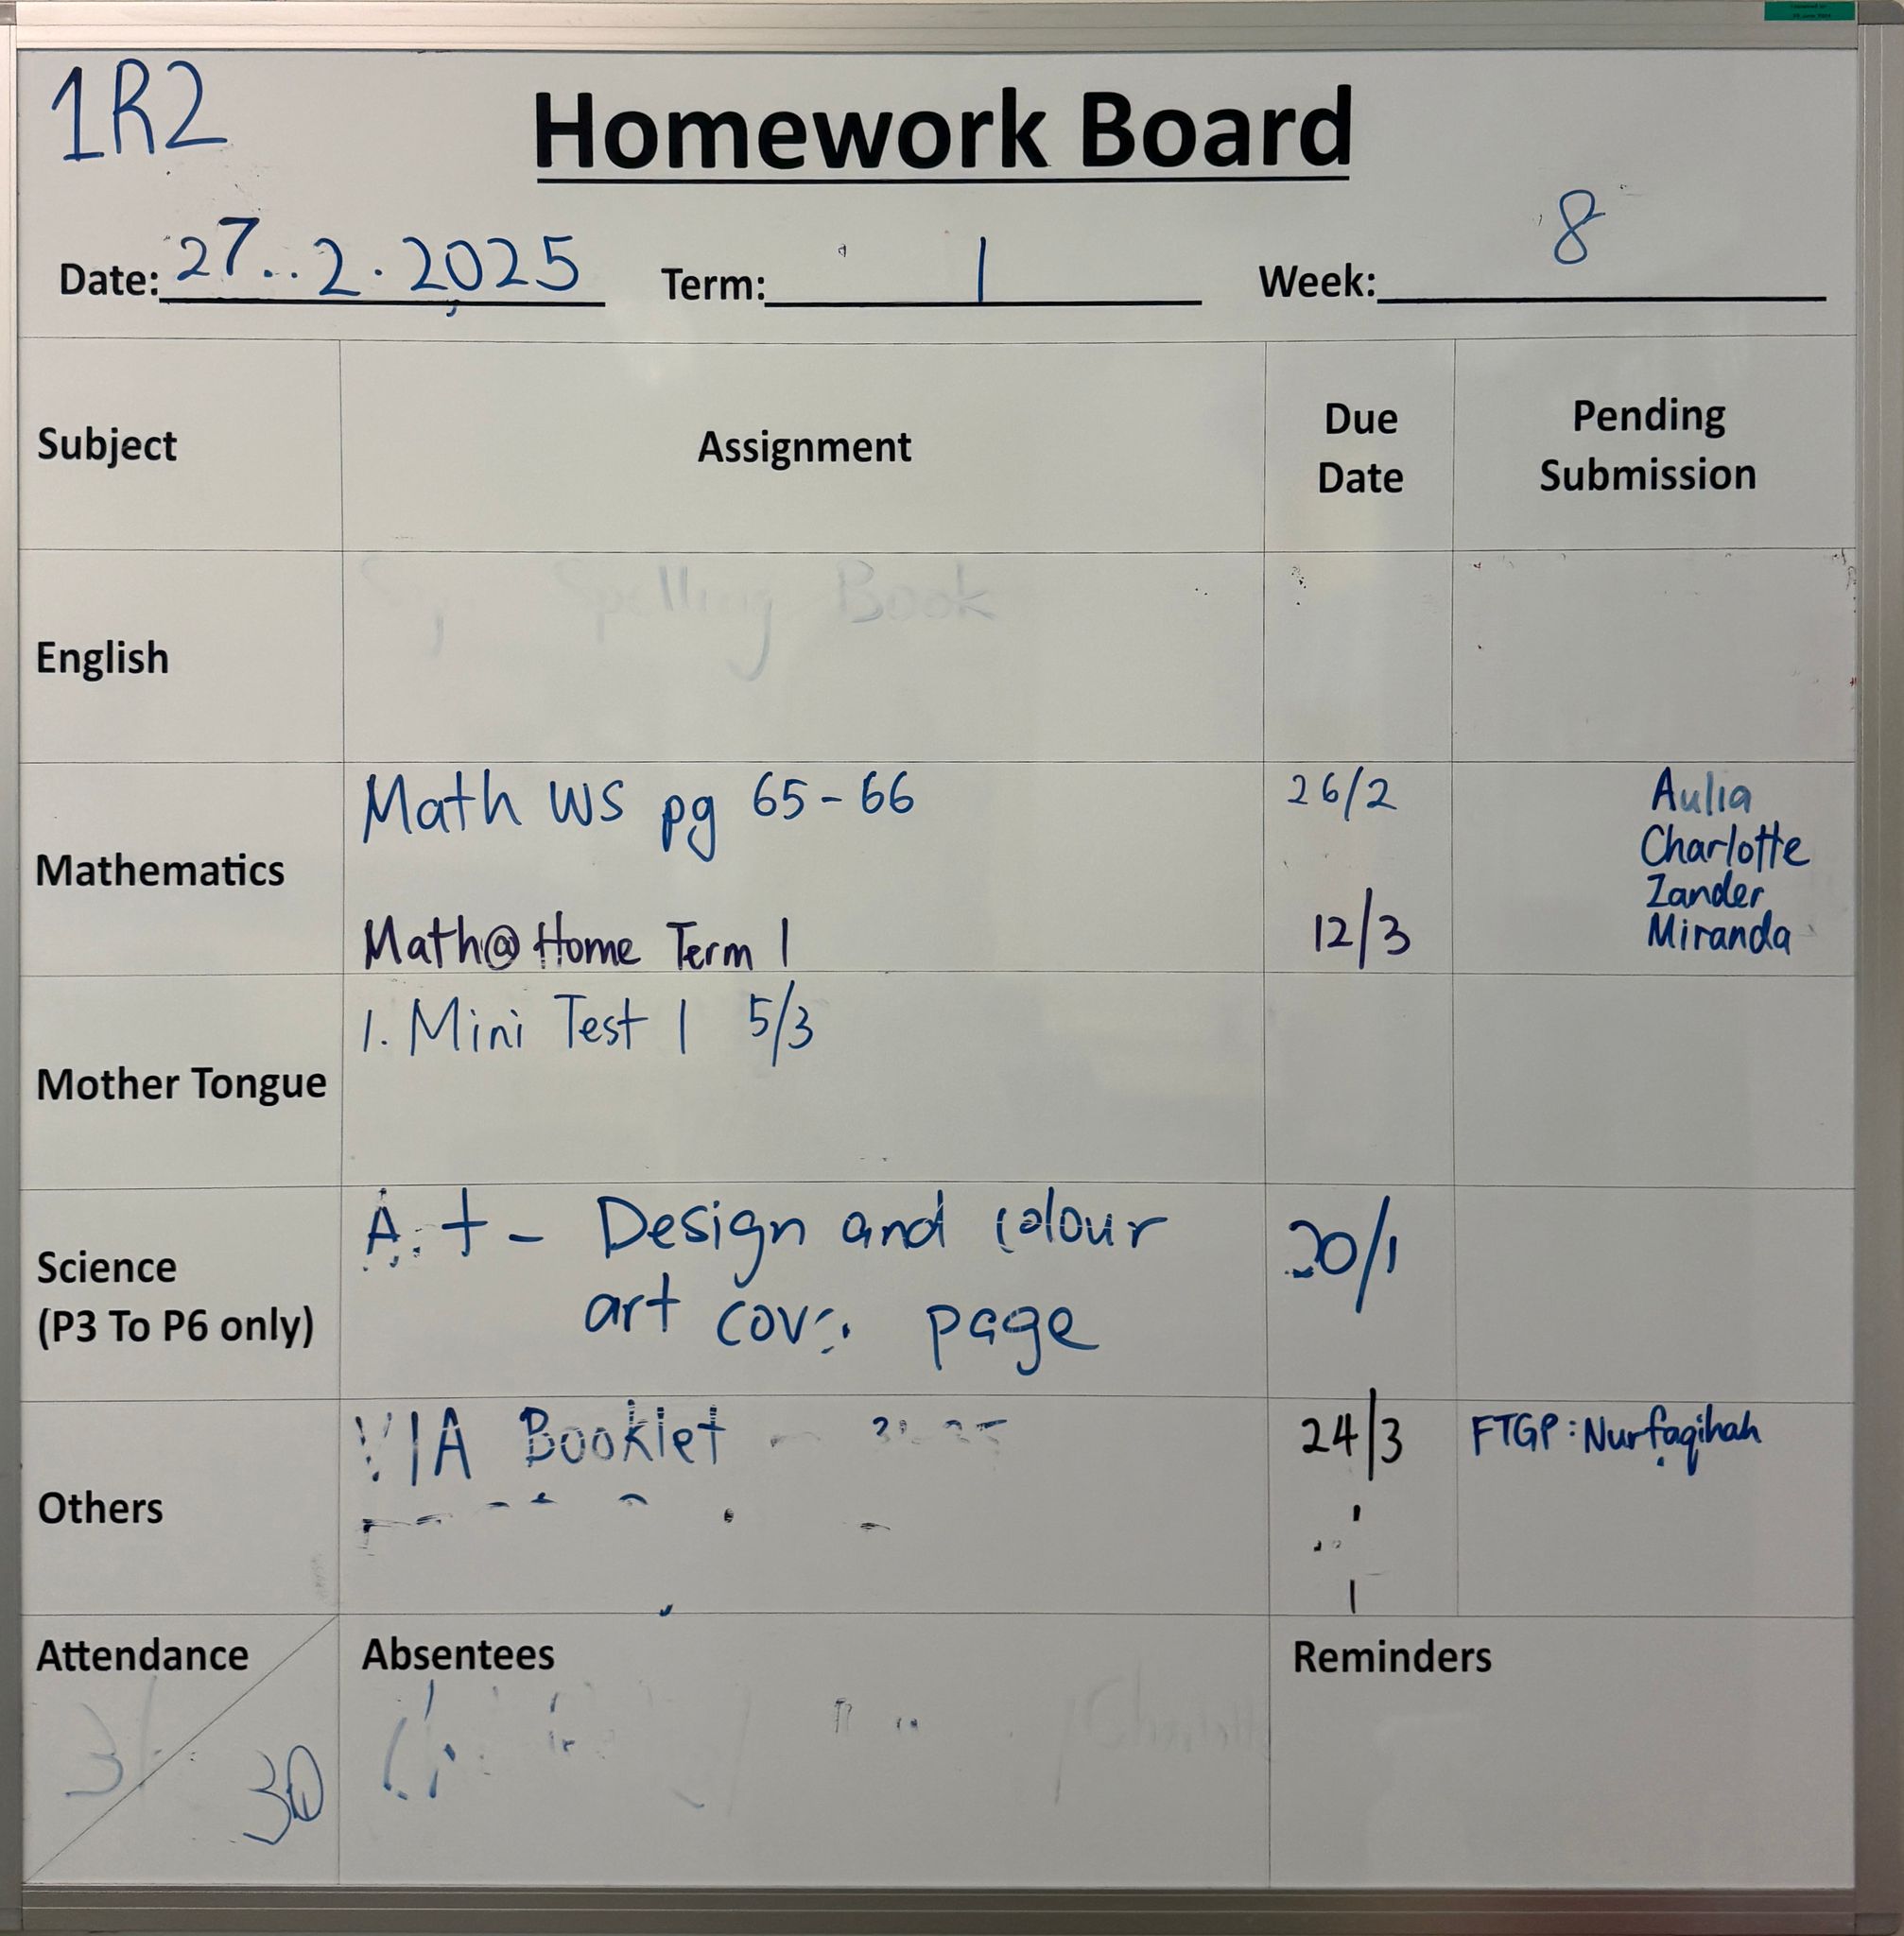 1R2
Homework Board
Date: 27..2.2025 Term: 1 Week: 8
Subject Assignment Due Date Pending Submission
English Spelling Book
Mathematics
Math WS pg 65-66 26/2
Math@Home Term 1 12/3
Aulia
Charlotte
Zander
Miranda
Mother Tongue
1. Mini Test 1 5/3
Science
(P3 To P6 only)
Art - Design and colour 20/1
art cover page
Others
VIA Booklet 24/3 FTGP: Nurfaqihah
Attendance Absentees Reminders
30